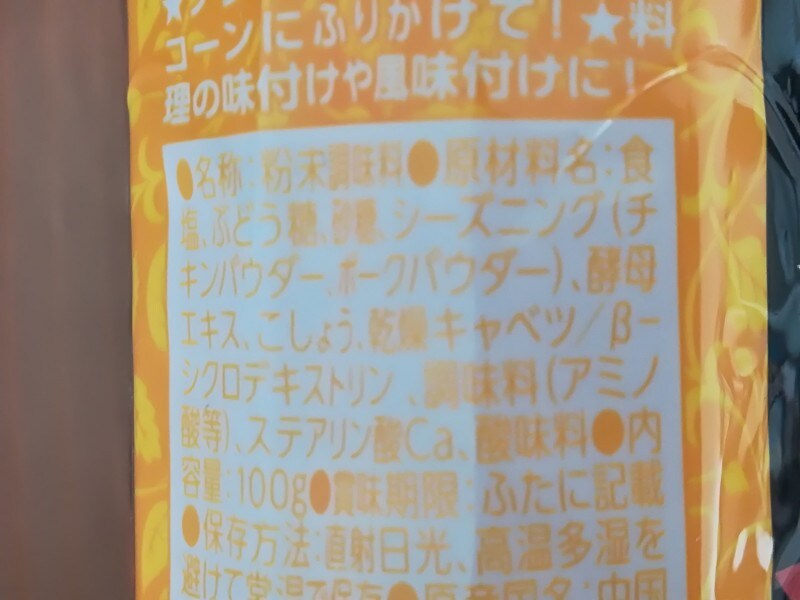 コーンにふりかけて!★料
理の味付けや風味付けに!
●名称:粉末調味料●原材料名:食
塩、ぶどう糖、砂糖、シーズニング(チ
キンパウダー、ポークパウダー)、酵母
エキス、こしょう、乾燥キャベツ/β-
シクロデキストリン、調味料(アミノ
酸等)、ステアリン酸Ca、酸味料●内
容量:100g●賞味期限:ふたに記載
●保存方法:直射日光、高温多湿を
避けて常温で保存●原産国名:中国